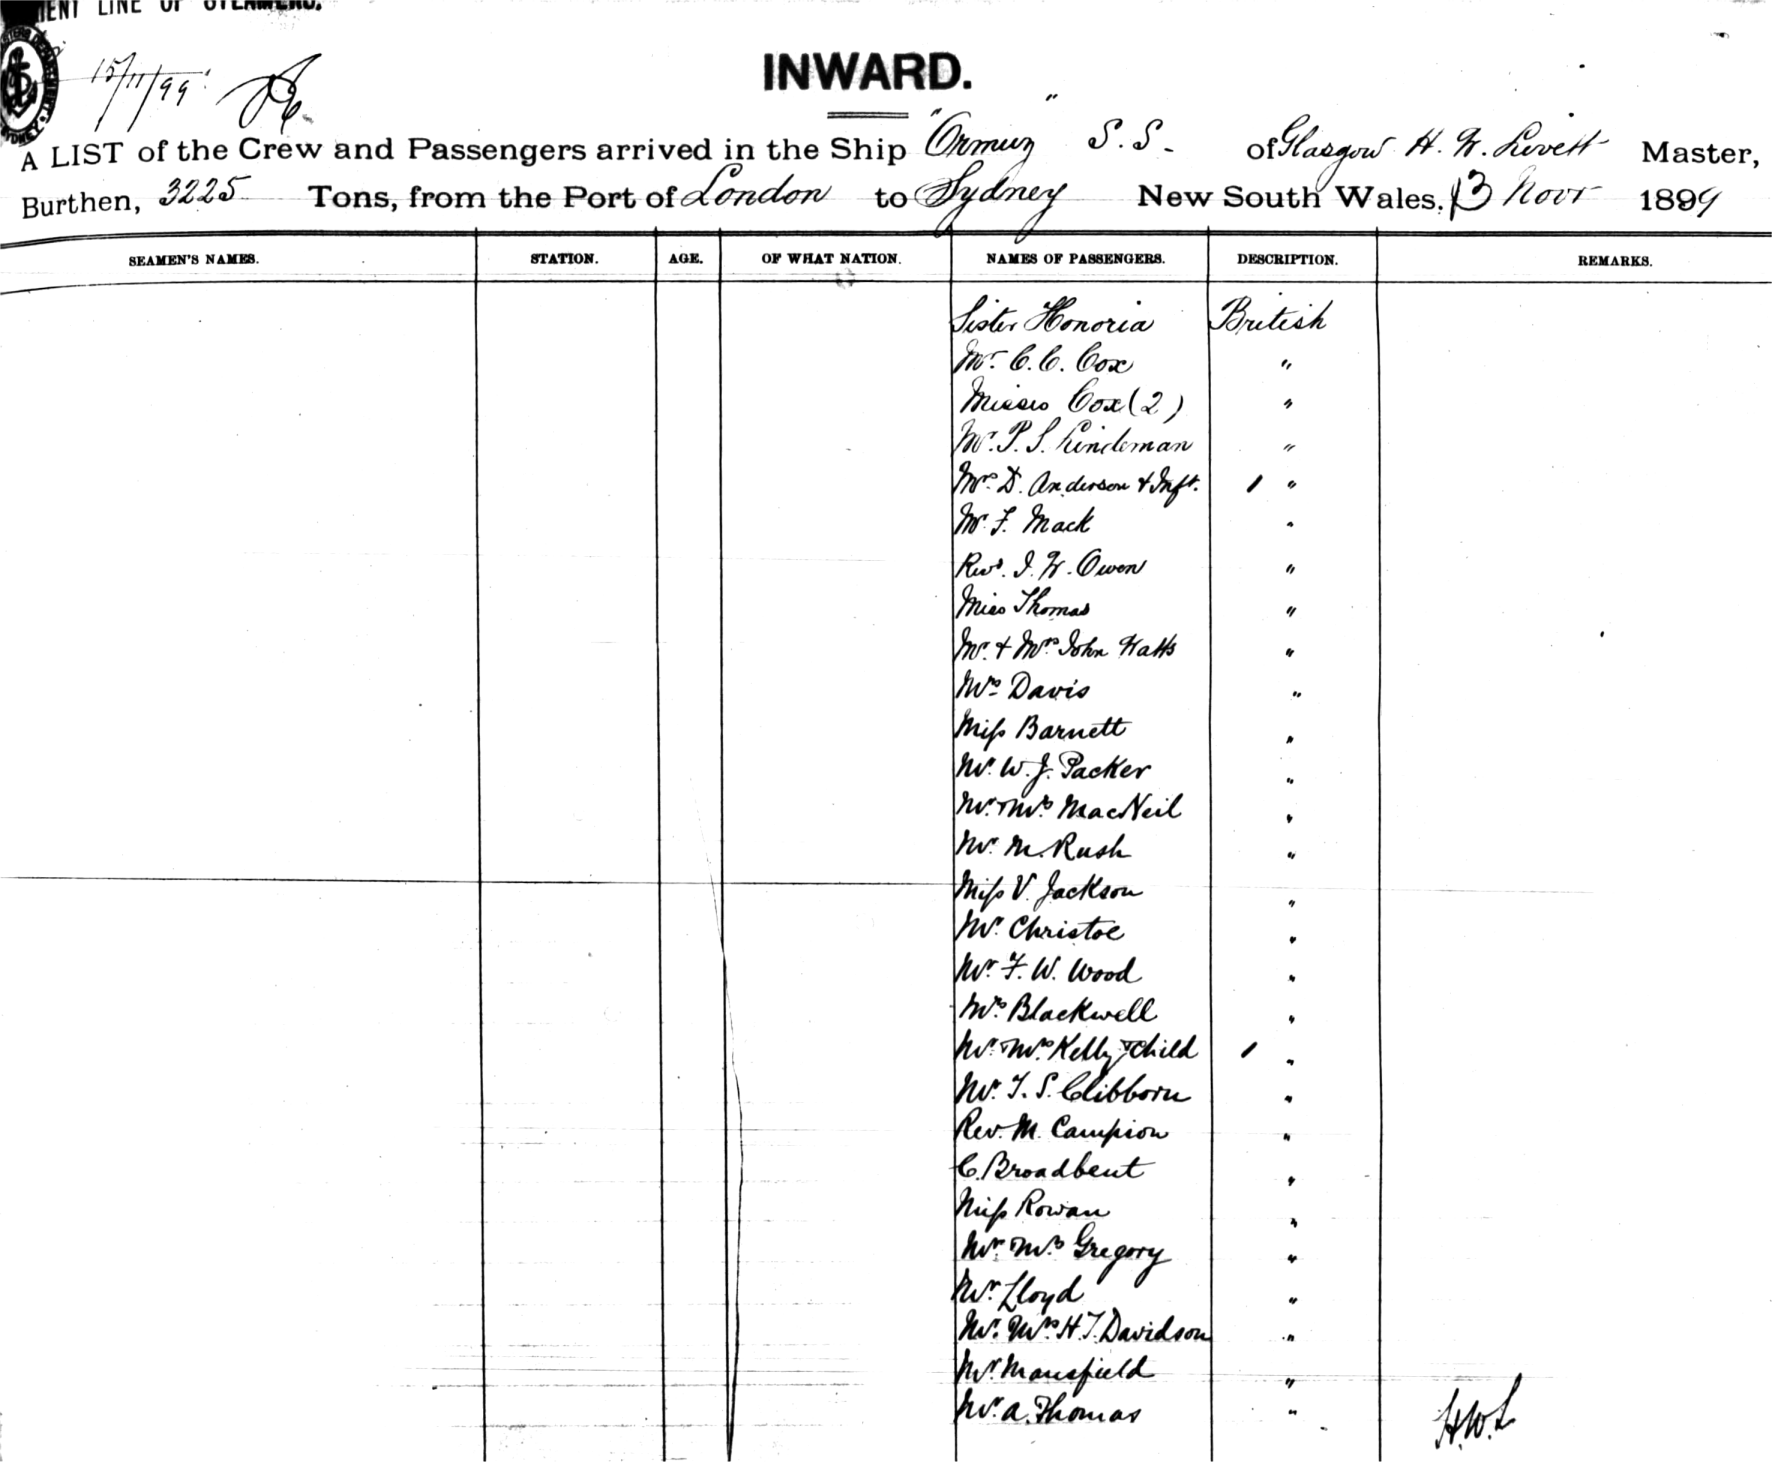 ENT LINE OF STEAMERS.
15/11/99
INWARD.
A LIST of the Crew and Passengers arrived in the Ship "Ormuz" S.S. of Glasgow H. W. Livett Master,
Burthen, 3225 Tons, from the Port of London to Sydney New South Wales, 13 Novr 1899
SEAMEN'S NAMES. STATION. AGE. OF WHAT NATION. NAMES OF PASSENGERS. DESCRIPTION. REMARKS.
Sister Honoria British
Mr. C. C. Cox "
Misses Cox (2) "
Mr. P. S. Lindeman "
Mrs D. Anderson & Inft. 1 "
Mr. F. Mack "
Revd. J. W. Owen "
Miss Thomas "
Mr. & Mrs John Watts "
Mrs Davis "
Miss Barnett "
Mr. W. J. Packer "
Mr. & Mrs MacNeil "
Mr. M. Rush "
Miss V. Jackson "
Mr. Christoe "
Mr. F. W. Wood "
Mrs Blackwell "
Mr. & Mrs Kelly & Child 1 "
Mr. T. S. Clibborn "
Rev. M. Campion "
C. Broadbent "
Miss Rowan "
Mr. & Mrs Gregory "
Mr. Lloyd "
Mr. & Mrs H. T. Davidson "
Mr Mansfield "
Mr. A. Thomas "
H.W.L